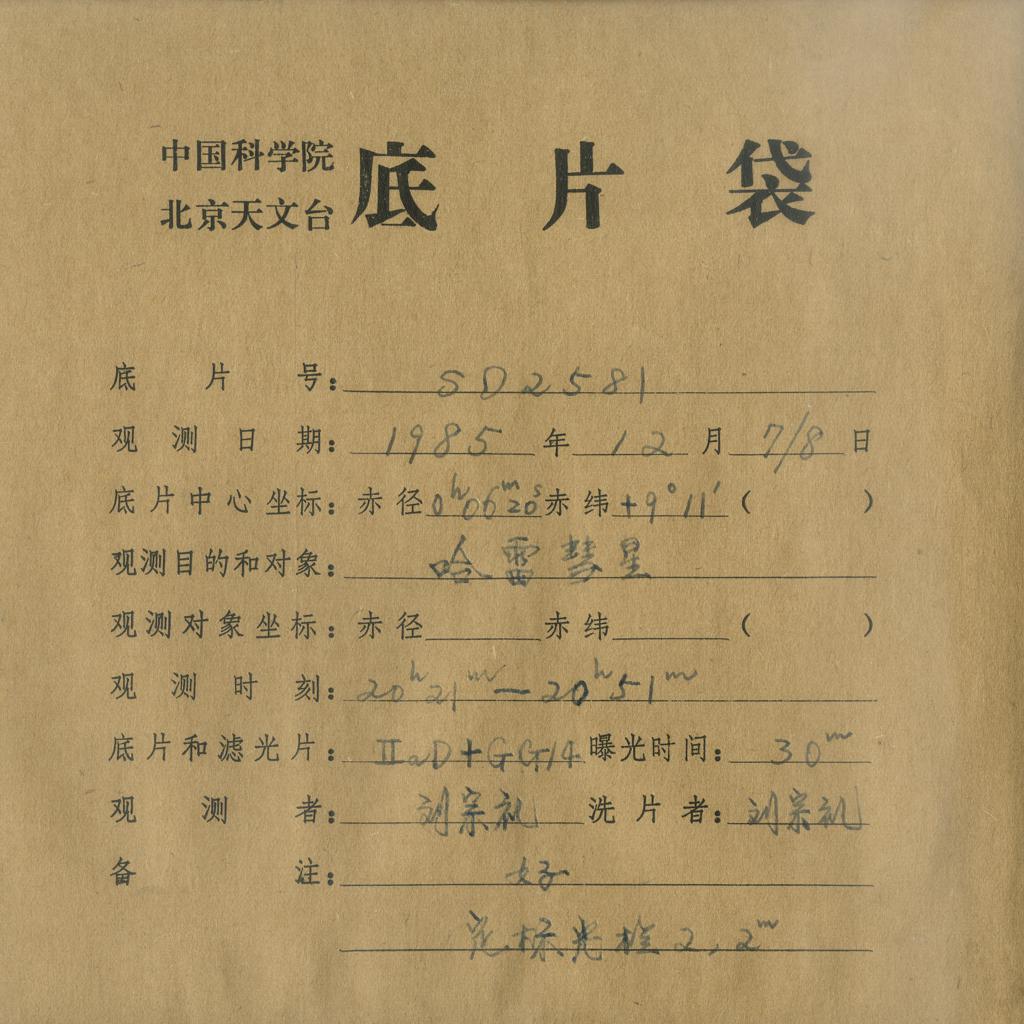 中国科学院
北京天文台
底片袋
底片号：SD2581
观测日期：1985年12月7/8日
底片中心坐标：赤径0ʰ06ᵐ20ˢ赤纬+9°11′（ ）
观测目的和对象：哈雷彗星
观测对象坐标：赤径 赤纬 （ ）
观测时刻：20ʰ21ᵐ—20ʰ51ᵐ
底片和滤光片：ⅡaD+GG14 曝光时间：30ᵐ
观测者：刘宗礼 洗片者：刘宗礼
备注：好
标光 2，2ᵐ